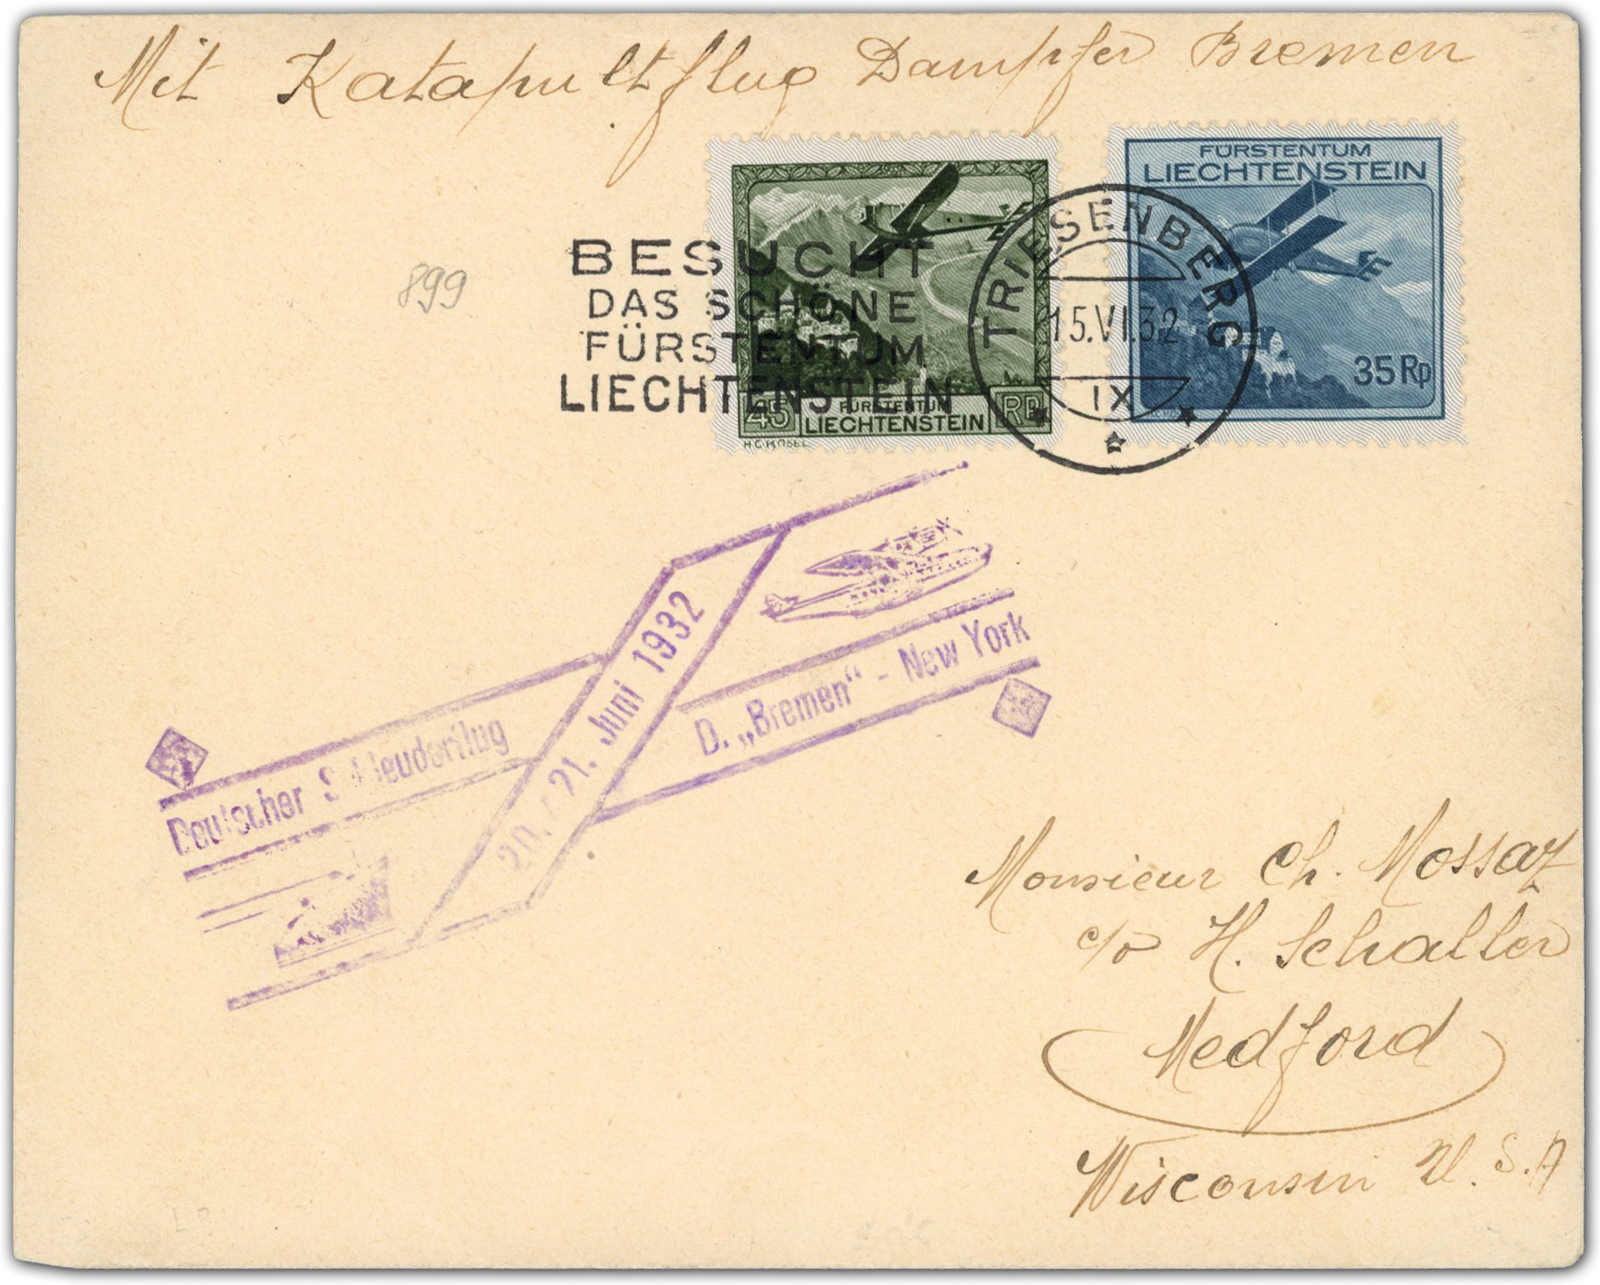 Mit Katapultflug Dampfer Bremen
FÜRSTENTUM
LIECHTENSTEIN
35 Rp
BESUCHT
DAS SCHÖNE
FÜRSTENTUM
LIECHTENSTEIN
45 FÜRSTENTUM RP
LIECHTENSTEIN
TRIESENBERG
15.VI.32
IX
899
Deutscher Schleuderflug
20. / 21. Juni 1932
D. „Bremen“ - New York
Monsieur Ch. Mossaz
c/o H. Schaller
Medford
Wisconsin U.S.A